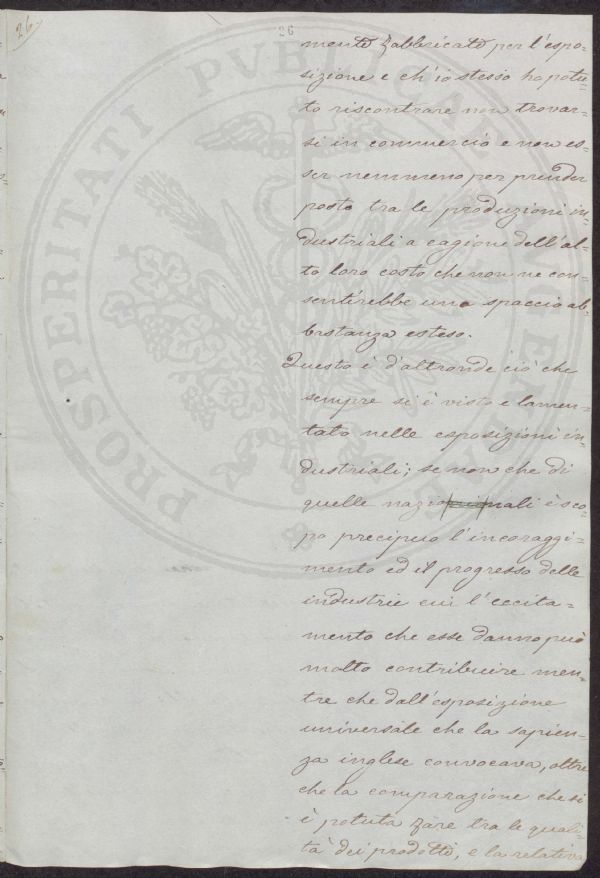 26
26
mente fabbricate per l'espo-
sizione e ch'io stesso ho potu-
to riscontrare non trovar-
si in commercio e non es-
ser nemmeno per prender
posto tra le produzioni in-
dustriali a cagione dell'al-
to loro costo che non ne con
sentirebbe uno spaccio ab-
bastanza esteso.
Questo è d'altronde ciò che
sempre si è visto e lamen-
tato nelle esposizioni in-
dustriali; se non che di
quelle nazionali è sco-
po precipuo l'incoraggi-
mento ed il progresso delle
industrie cui l'eccita-
mento che esse danno può
molto contribuire men-
tre che dall'esposizione
universale che la sapien-
za inglese convocava, oltre
che la comparazione che si
è potuta fare tra le quali-
tà dei prodotti, e la relativa
PROSPERITATI PUBLICAE AUGENDAE